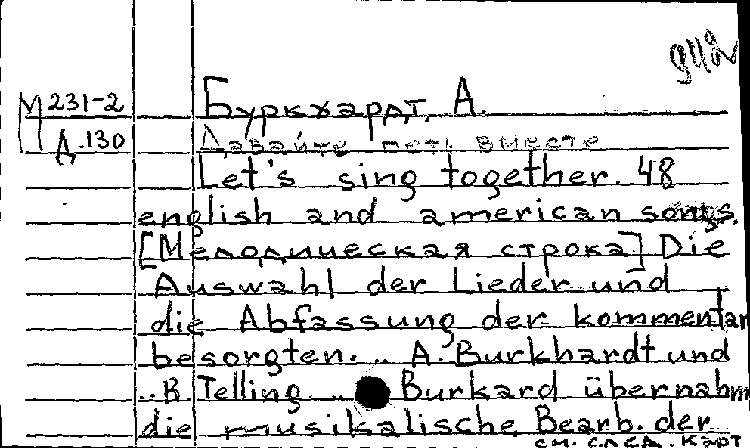 942
М 231-2 Буркхардт, А.
Д.130 Давайте петь вместе
Let's sing together. 48
english and american songs.
[Мелодическая строка] Die
Auswahl der Lieder und
die Abfassung der kommentar
besorgten... A. Burkhardt und
..B Telling... Burkard übernahm
die musikalische Bearb. der
см. след. карт